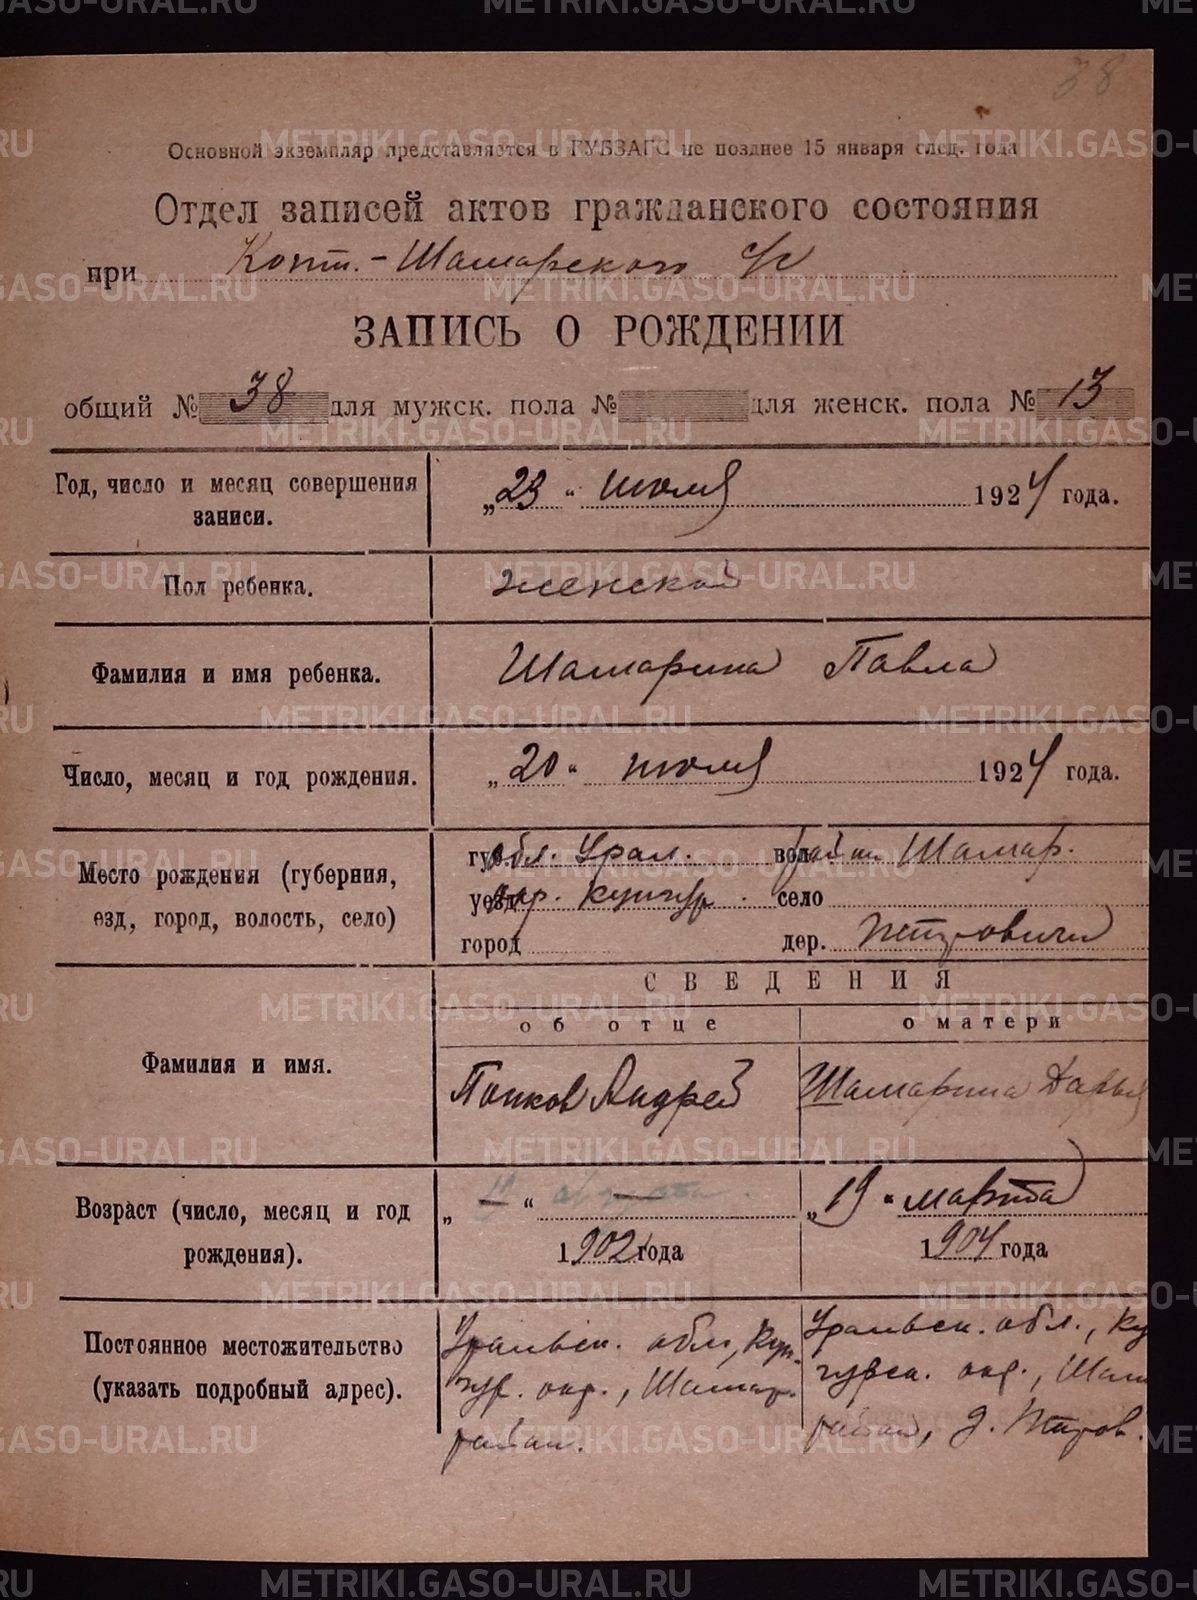 38
Основной экземпляр представляется в ГУБЗАГС не позднее 15 января след. года
Отдел записей актов гражданского состояния
при Копт.-Шамарского с/с
ЗАПИСЬ О РОЖДЕНИИ
общий № 38 для мужск. пола № для женск. пола № 13
Год, число и месяц совершения записи. „23“ июля 1924 года.
Пол ребенка. женской
Фамилия и имя ребенка. Шамарина Павла
Число, месяц и год рождения. „20“ июля 1924 года.
Место рождения (губерния, обл. Урал. вол. Шамар.
езд, город, волость, село) уезд окр. Кунгур. село
город дер. Петровичи
СВЕДЕНИЯ
об отце о матери
Фамилия и имя. Попков Андрей Шамарина Дарья
Возраст (число, месяц и год „ “ „19“ марта
рождения). 1902 года 1904 года
Постоянное местожительство Уральск. обл., Кун- Уральск. обл., Ку
(указать подробный адрес). гур. окр., Шамар. гурск. окр., Шам
район. район, д. Петров.
METRIKI.GASO-URAL.RU